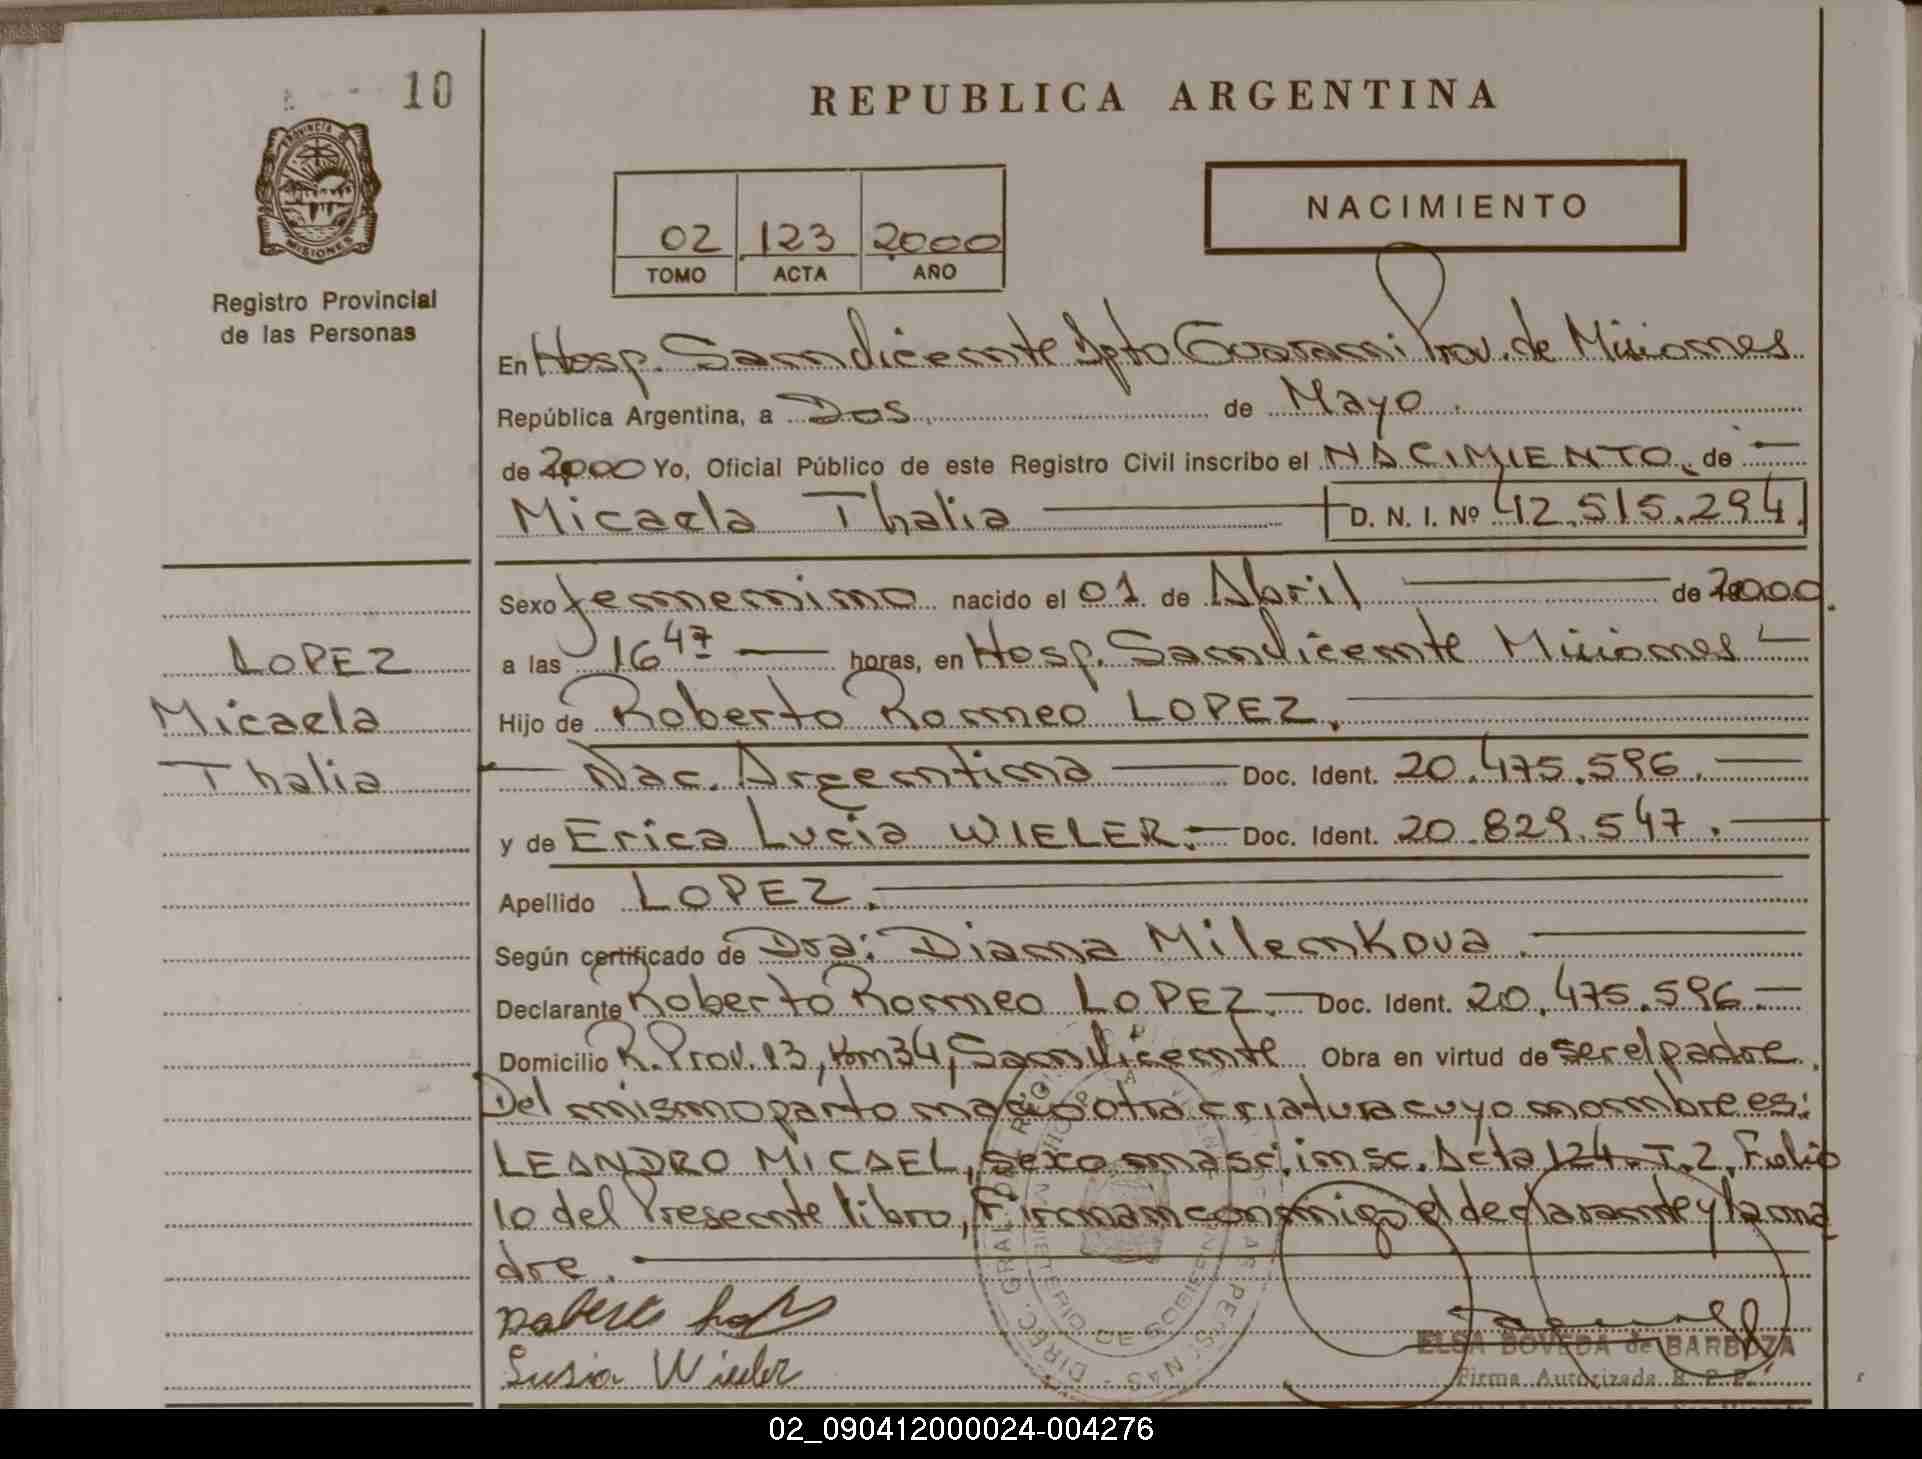 10
REPUBLICA ARGENTINA
PROVINCIA DE
MISIONES
Registro Provincial
de las Personas
02 123 2000
TOMO ACTA AÑO
NACIMIENTO
En Hosp. San Vicente Dpto Guarani Prov. de Misiones
República Argentina, a Dos de Mayo
de 2000 Yo, Oficial Público de este Registro Civil inscribo el NACIMIENTO de
Micaela Thalia D. N. I. Nº 42.515.294.
Sexo femenino nacido el 01 de Abril de 2000.
a las 16 47 horas, en Hosp. San Vicente Misiones
Hijo de Roberto Romeo LOPEZ.
Nac. Argentina Doc. Ident. 20.475.596.
y de Erica Lucia WIELER. Doc. Ident. 20.829.547.
Apellido LOPEZ.
Según certificado de Dra: Diana Milenkova.
Declarante Roberto Romeo LOPEZ. Doc. Ident. 20.475.596.
Domicilio R. Prov. 13, Km 34, San Vicente Obra en virtud de ser el padre.
Del mismo parto nacio otra criatura cuyo nombre es:
LEANDRO MICAEL, sexo masc. insc. Acta 124. T. 2, Folio
10 del Presente libro, Firman conmigo el declarante y la ma
dre.
LOPEZ
Micaela
Thalia
Wieler
ELSA BOVEDA de BARBOZA
Firma Autorizada R. P. P.
02_090412000024-004276